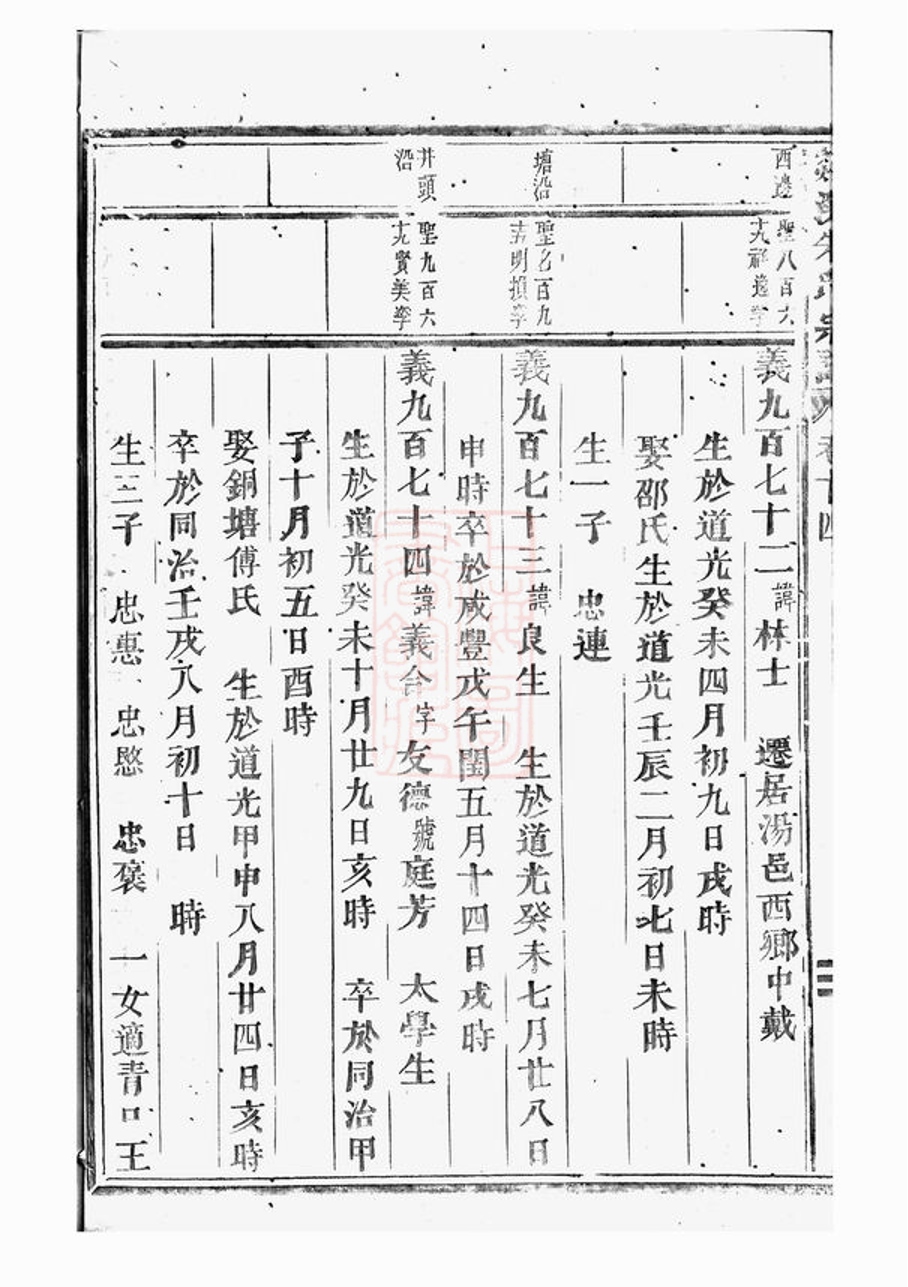 卷十四
西邊
聖八百六
十九祥逵孚
義九百七十二諱林士　遷居湯邑西鄉中戴
生於道光癸未四月初九日戌時
娶邵氏生於道光壬辰二月初七日未時
生一子　忠連
塘沿
聖九百九
十五明損孚
義九百七十三諱良生　生於道光癸未七月廿八日
申時卒於咸豐戊午閏五月十四日戌時
井頭
沿
聖九百六
十九賢美孚
義九百七十四諱義合字友德號庭芳　太學生
生於道光癸未十月廿九日亥時　卒於同治甲
子十月初五日酉時
娶銅塘傅氏　生於道光甲申八月廿四日亥時
卒於同治壬戌八月初十日　時
生三子　忠惠　忠愍　忠褒　一女適青口王